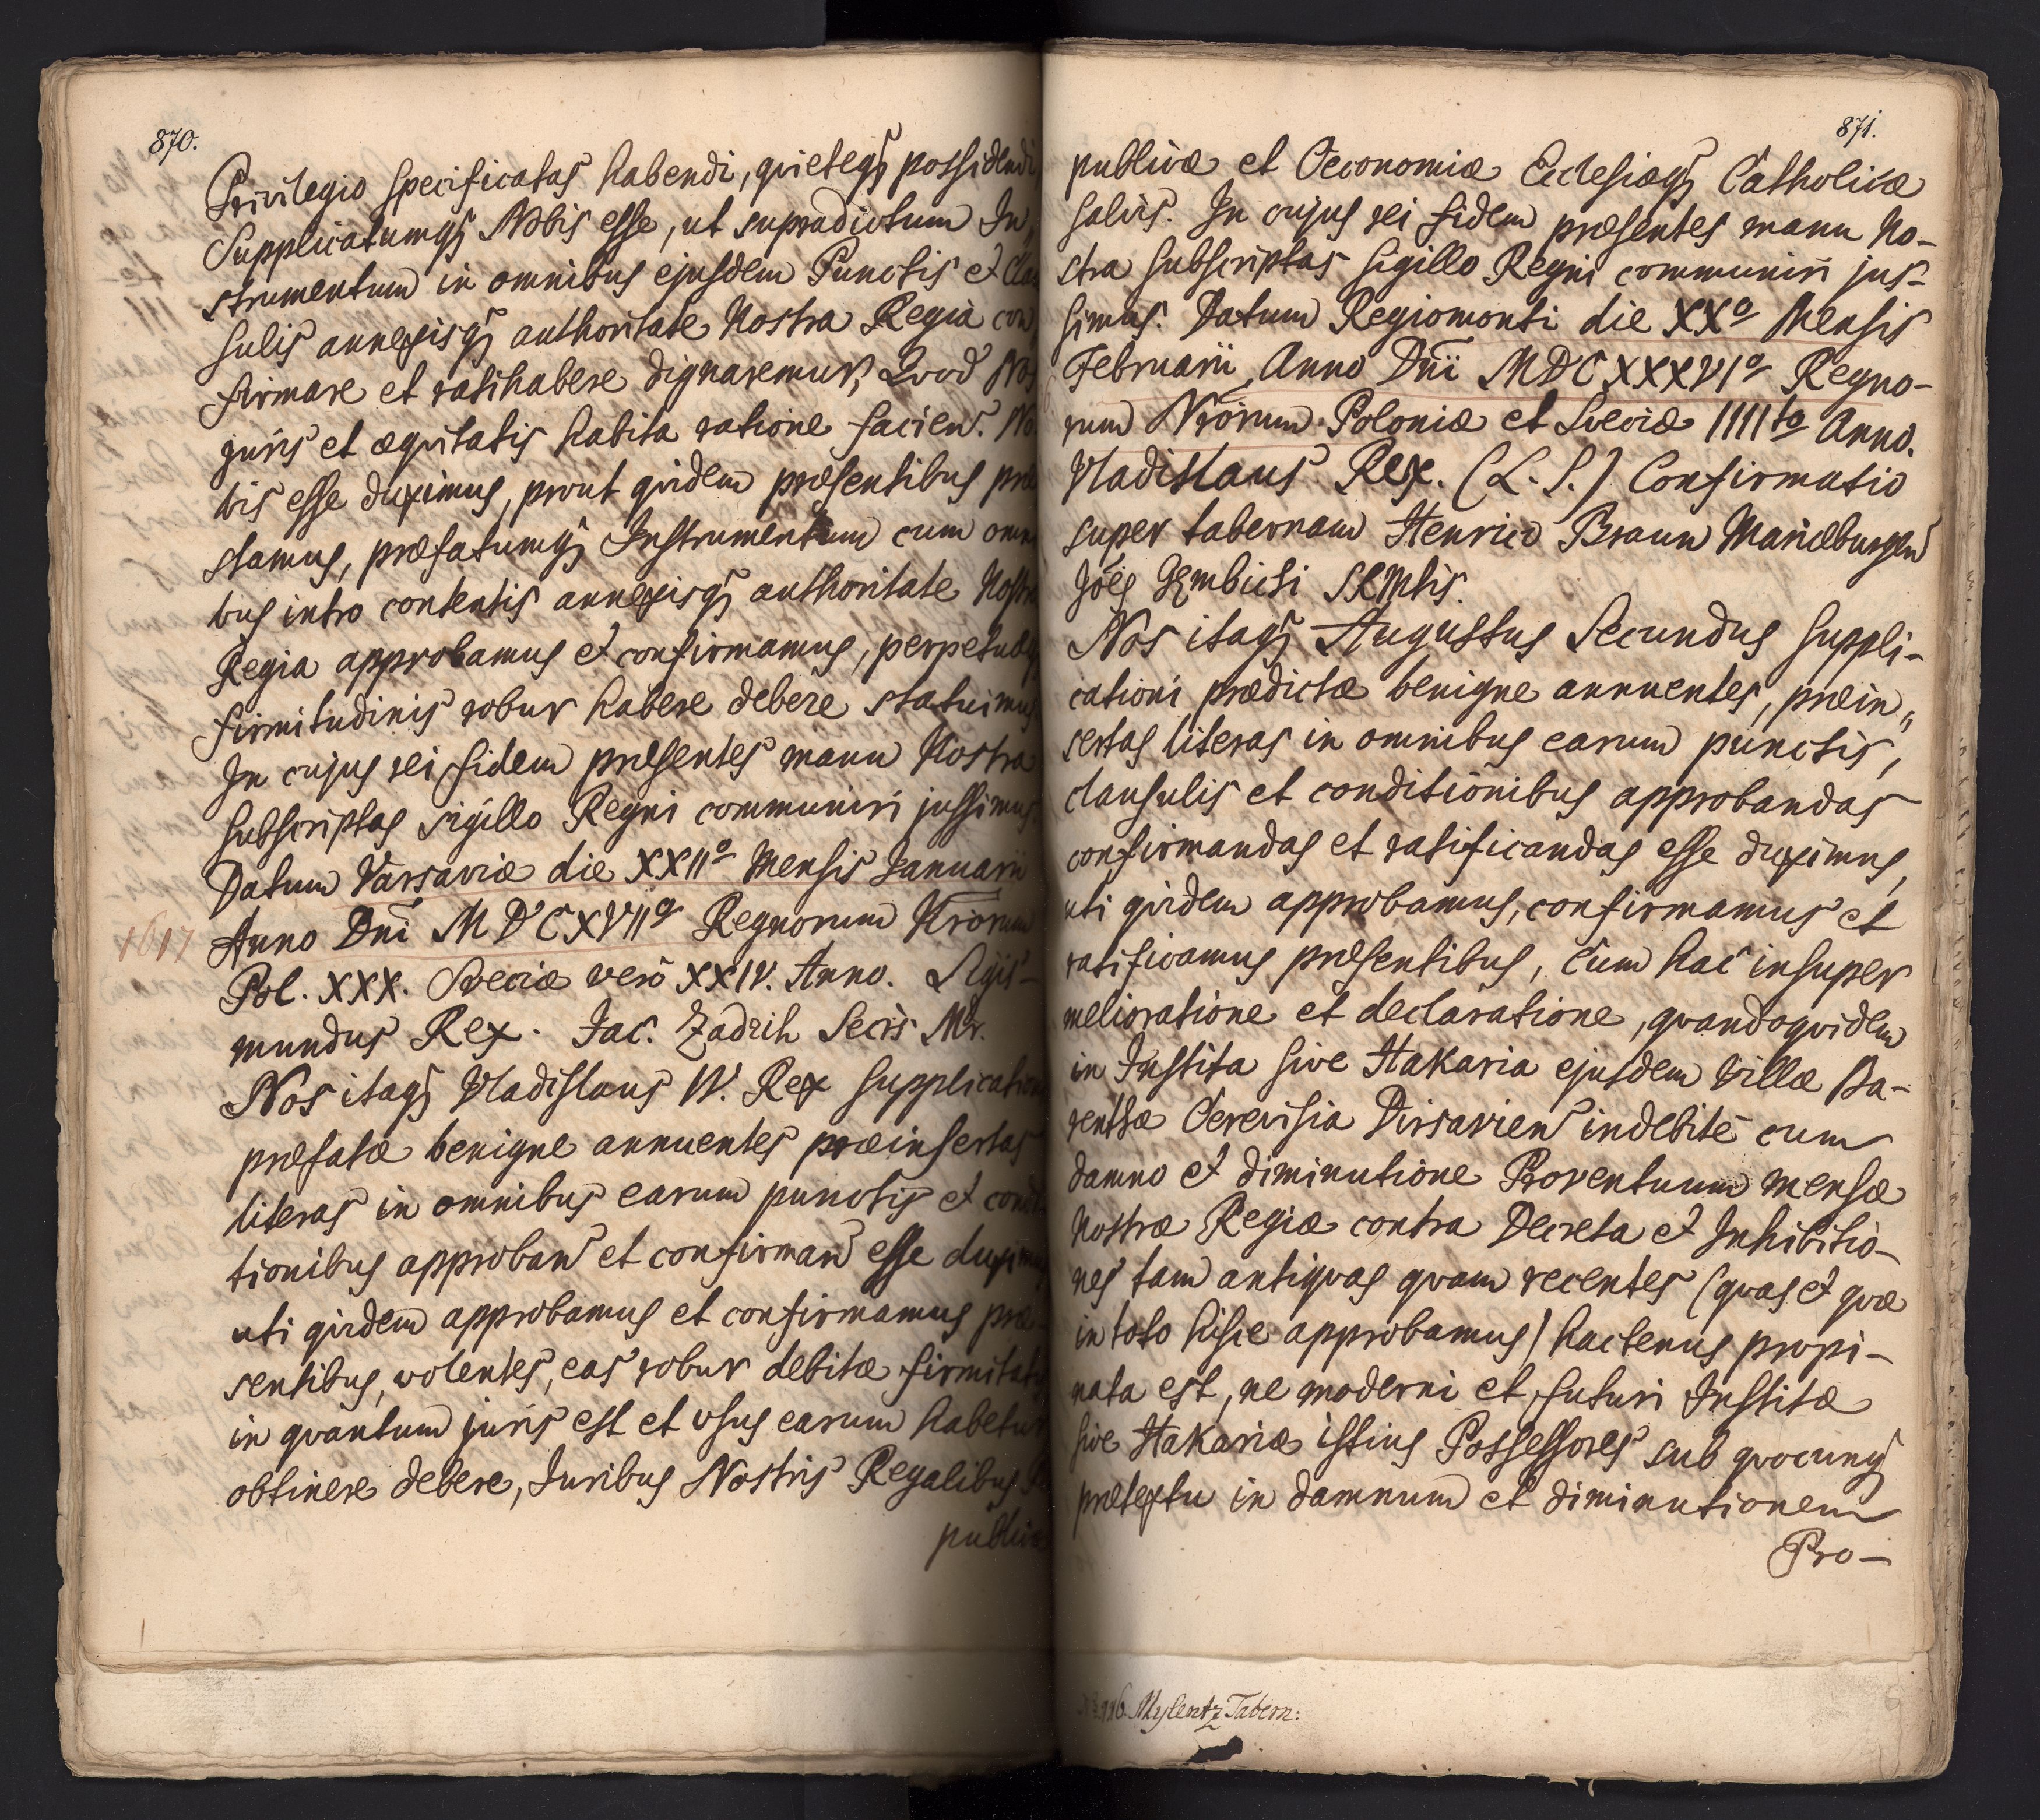 870.
Privilegio specificatas habendi, quieteqꝫ possidendi
Supplicatumqꝫ Nobis esse, ut supradictum In„
strumentum in omnibus ejusdem Punctis et Clau
sulis annexisqꝫ authoritate Nostra Regia con
firmare et ratihabere dignaremur, Quod Nos
juris et æquitatis habita ratione facien. No
bis esse duximus, prout quidem præsentibus præ
stamus, præfatumqꝫ Instrumentum cum omni
bus intro contentis annexisqꝫ authoritate Nostra
Regia approbamus et confirmamus, perpetuæqꝫ
firmitudinis robur habere debere statuimus
In cujus rei fidem præsentes manu Nostra
subscriptas sigillo Regni communiri jussimus.
Datum Varsaviæ die XXIIᵃ Mensis Januarii
1617
Anno Dni MDCXVIIᵒ Regnorum Nrorum
Pol. XXX. Sveciæ verò XXIV. Anno. Sigis-
mundus Rex. Jac. Zadzik Secrs Mr.
Nos itaqꝫ Vladislaus IV. Rex supplicationi
præfatæ benigne annuentes præinsertas
literas in omnibus earum punctis et condi-
tionibus approban et confirman esse duximus
uti quidem approbamus et confirmamus præ-
sentibus, volentes, eas robur debitæ firmitatis
in quantum juris est et usus earum habetur
obtinere debere, Juribus Nostris Regalibus Re
publicæ
871.
publicæ et Oeconomiæ Ecclesiæqꝫ Catholicæ
salvis. In cujus rei fidem præsentes manu No-
stra subscriptas sigillo Regni communiri jus-
simus. Datum Regiomonti die XXᵃ Mensis
Februarii, Anno Dni MDCXXXVIᵒ Regno-
rum Nrorum Poloniæ et Sveciæ IIIIto Anno.
Vladislaus Rex. (L.S.) Confirmatio
super tabernam Henrico Braun Mariæburgen
Joës Gembicki SRMtis.
Nos itaqꝫ Augustus Secundus suppli-
cationi prædictæ benigne annuentes, præin„
sertas literas in omnibus earum punctis,
clausulis et conditionibus approbandas
confirmandas et ratificandas esse duximus,
uti quidem approbamus, confirmamus et
ratificamus præsentibus, cum hac insuper
melioratione et declaratione, quandoquidem
in Instita sive Hakaria ejusdem Villæ Ba-
renthæ Cerevisia Dirsavien indebitè cum
damno et diminutione Proventuum mensæ
Nostræ Regiæ contra Decreta et Inhibitio-
nes tam antiquas quam recentes (quas et quæ
in toto hisce approbamus) hactenus propi-
nata est, ne moderni et futuri Institæ
sive Hakariæ istius Possessores sub quocunqꝫ
prætextu in damnum et diminutionem
Pro-
Mylentz Tabern: